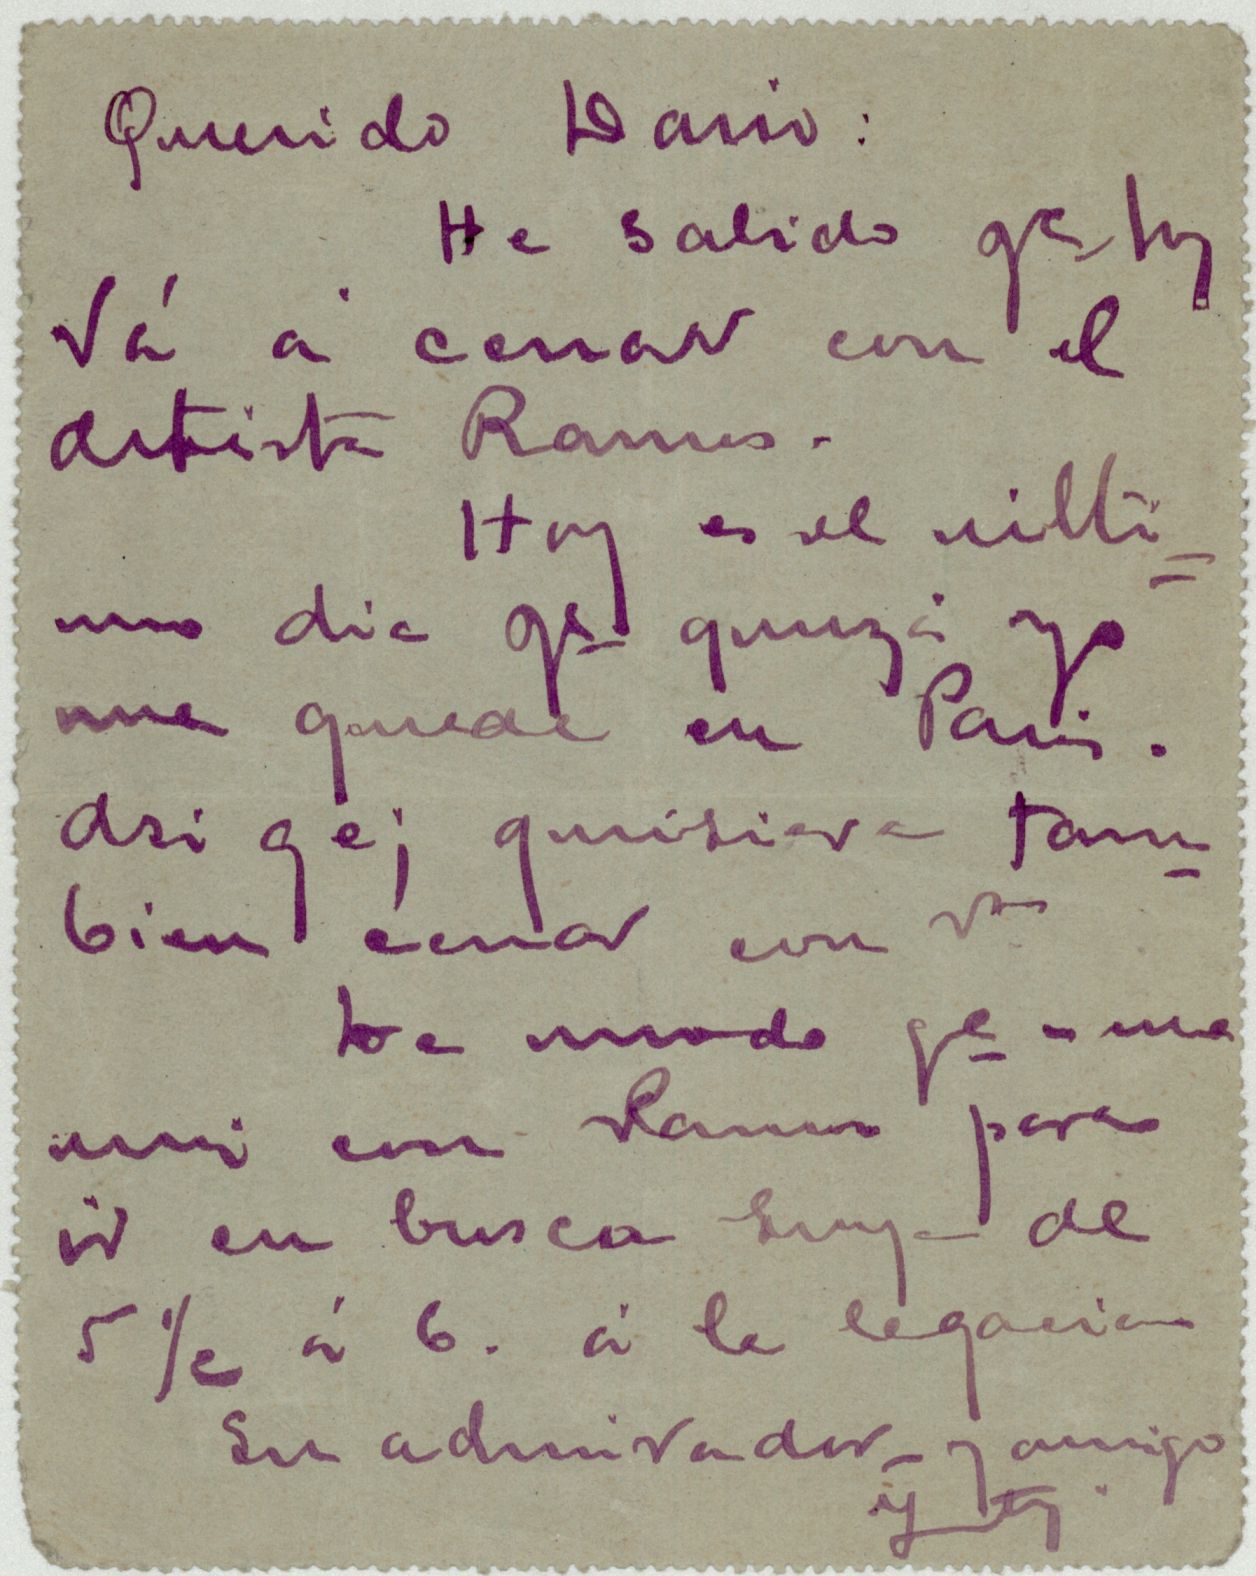 Querido Dario:
He salido qe hoy
Vá á cenar con el
artista Ramos.
Hoy es el ulti=
mo dia qe quizá yo
me quede en Paris.
Asi qe; quisiera tam=
bien cenar con Vs
De modo qe me
uni con Ramos para
ir en busca suya de
5 1/2 á 6. á la legacion
Su admirador y amigo